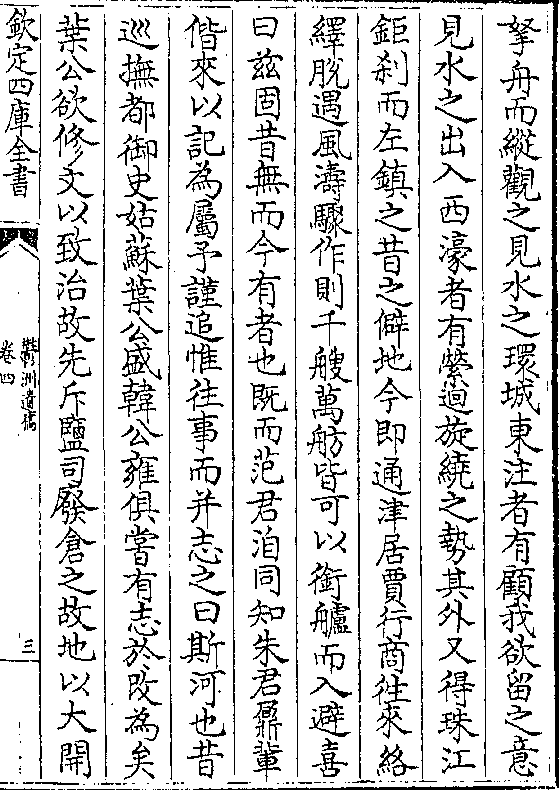 拏舟而縱觀之見水之環城東注者有顧我欲留之意
見水之出入西濠者有縈迴旋繞之勢其外又得珠江
鉅刹而左鎮之昔之僻地今即通津居賈行商徃來絡
繹脫遇風濤驟作則千艘萬舫皆可以銜艫而入避喜
曰兹固昔無而今有者也既而范君洎同知朱君鼐軰
偕來以記為屬予謹追惟往事而并志之曰斯河也昔
巡撫都御史姑蘇葉公盛韓公雍俱嘗有志於改為矣
葉公欲修文以致治故先斥鹽司廢倉之故地以大開
欽定四庫全書
卷四
洲遺稿
三